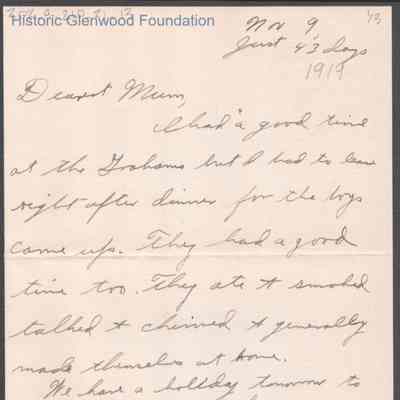 Historic Glenwood Foundation
Nov 9,
Just 43 days
1919
43
Dearest Mum,
I had a good time
at the Grahams but I had to leave
right after dinner for the boys
came up. They had a good
time too. They ate & smoked
talked & chinned & generally
made themselves at home.
We have a holiday tomorrow to